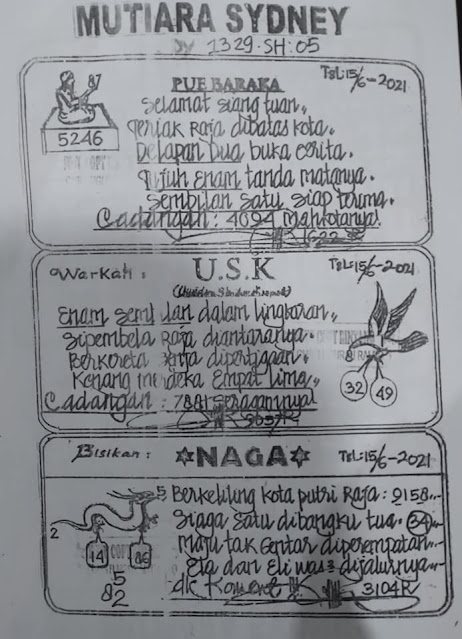 MUTIARA SYDNEY
1329·SH:05
87
5246
PUE BARAKA
TgL:15/6-2021
Selamat siang tuan,,
Teriak Raja dibatas kota.
Delapan Dua buka cerita.
Tujuh Enam tanda matanya.
Sembilan satu siap terima.
Cadangan: 4094 Mahkotanya!
1622
Warkah:
U.S.K
TgL:15/6-2021
Enam sembilan dalam lingkaran,
Sipembela Raja diantaranya.
Berkereta
Kenang merdeka Empat Lima,,
Cadangan: 7881 seragamnya!
8
32
49
Bisikan:
NAGA
TgL:15/6-2021
5
2
14
86
5
82
Berkeliling kota putri Raja: 0158...
Siaga satu dibangku tua. 34
Maju tak gentar diperempatan...
Eta dan Eli was² dijalurnya...
3104R